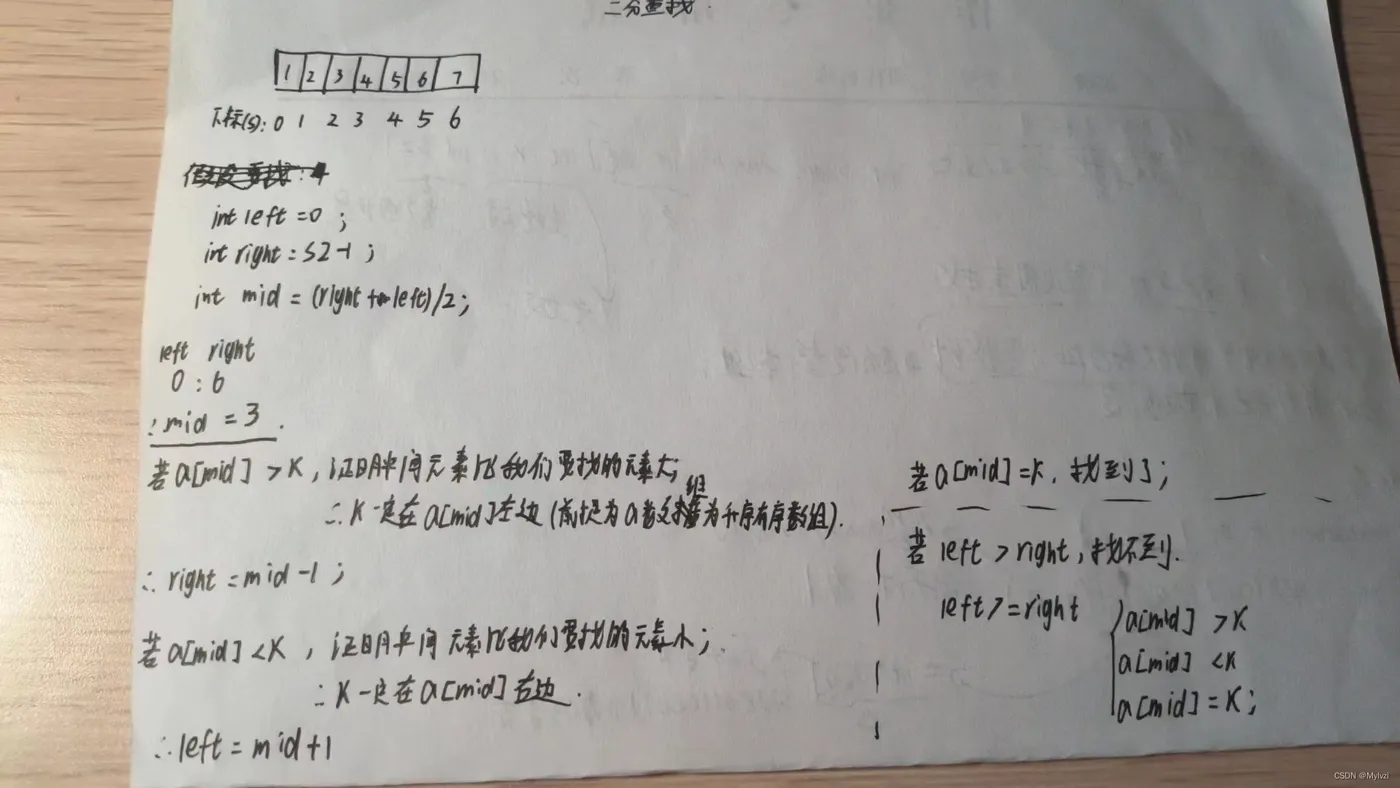 二分查找.
1 2 3 4 5 6 7
下标(s): 0 1 2 3 4 5 6
int left = 0 ;
int right = sz-1 ;
int mid = (right + left)/2;
left right
0 : 6
∴ mid = 3 .
若 a[mid] > K , 证明中间元素比我们要找的元素大;
∴ K一定在 a[mid]左边 (前提为 a数组为升序有序数组).
∴ right = mid -1 ;
若 a[mid] < K , 证明中间元素比我们要找的元素小;
∴ K一定在 a[mid] 右边 .
∴ left = mid+1
若 a[mid] = K , 找到了;
若 left > right , 找不到.
left >= right
a[mid] > K
a[mid] < K
a[mid] = K ;
CSDN @Mylvzi